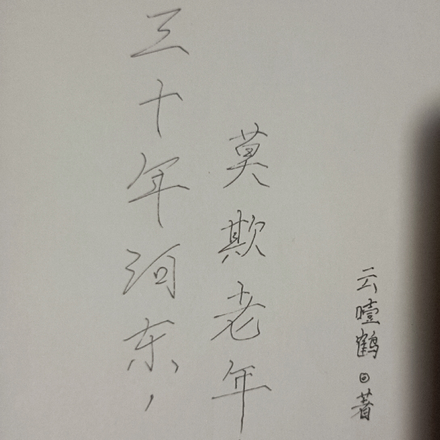 三十年河东，
莫欺老年
云曀鹤著